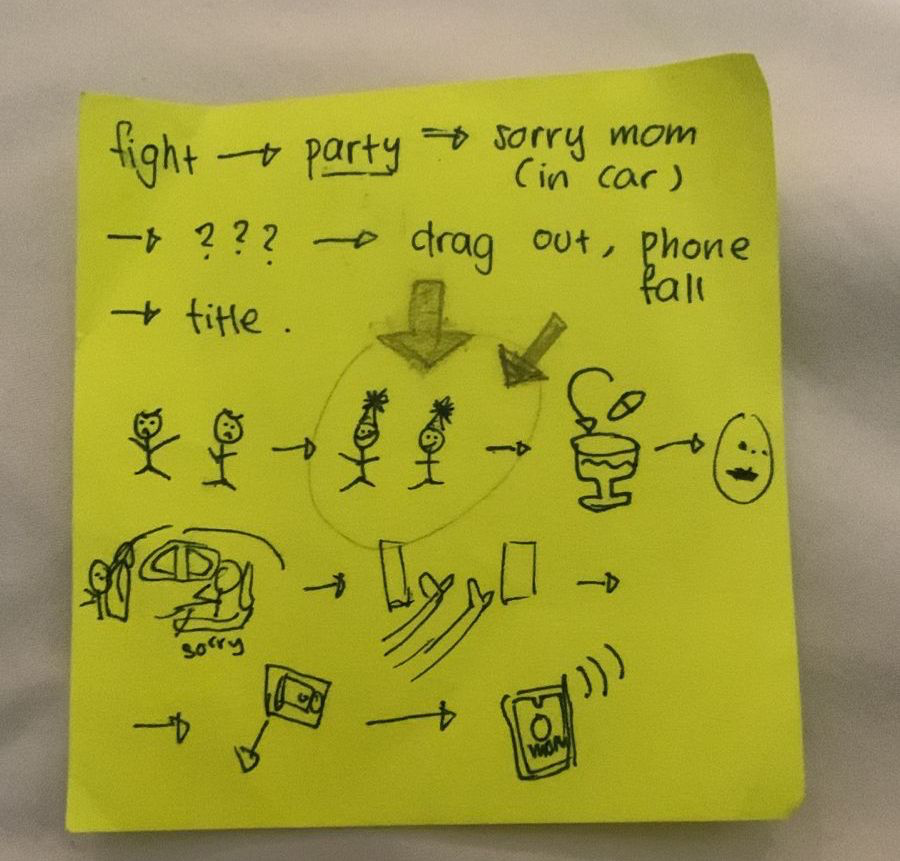 fight → party ⇒ sorry mom
(in car)
→ ??? → drag out, phone
fall
→ title.
sorry
mom